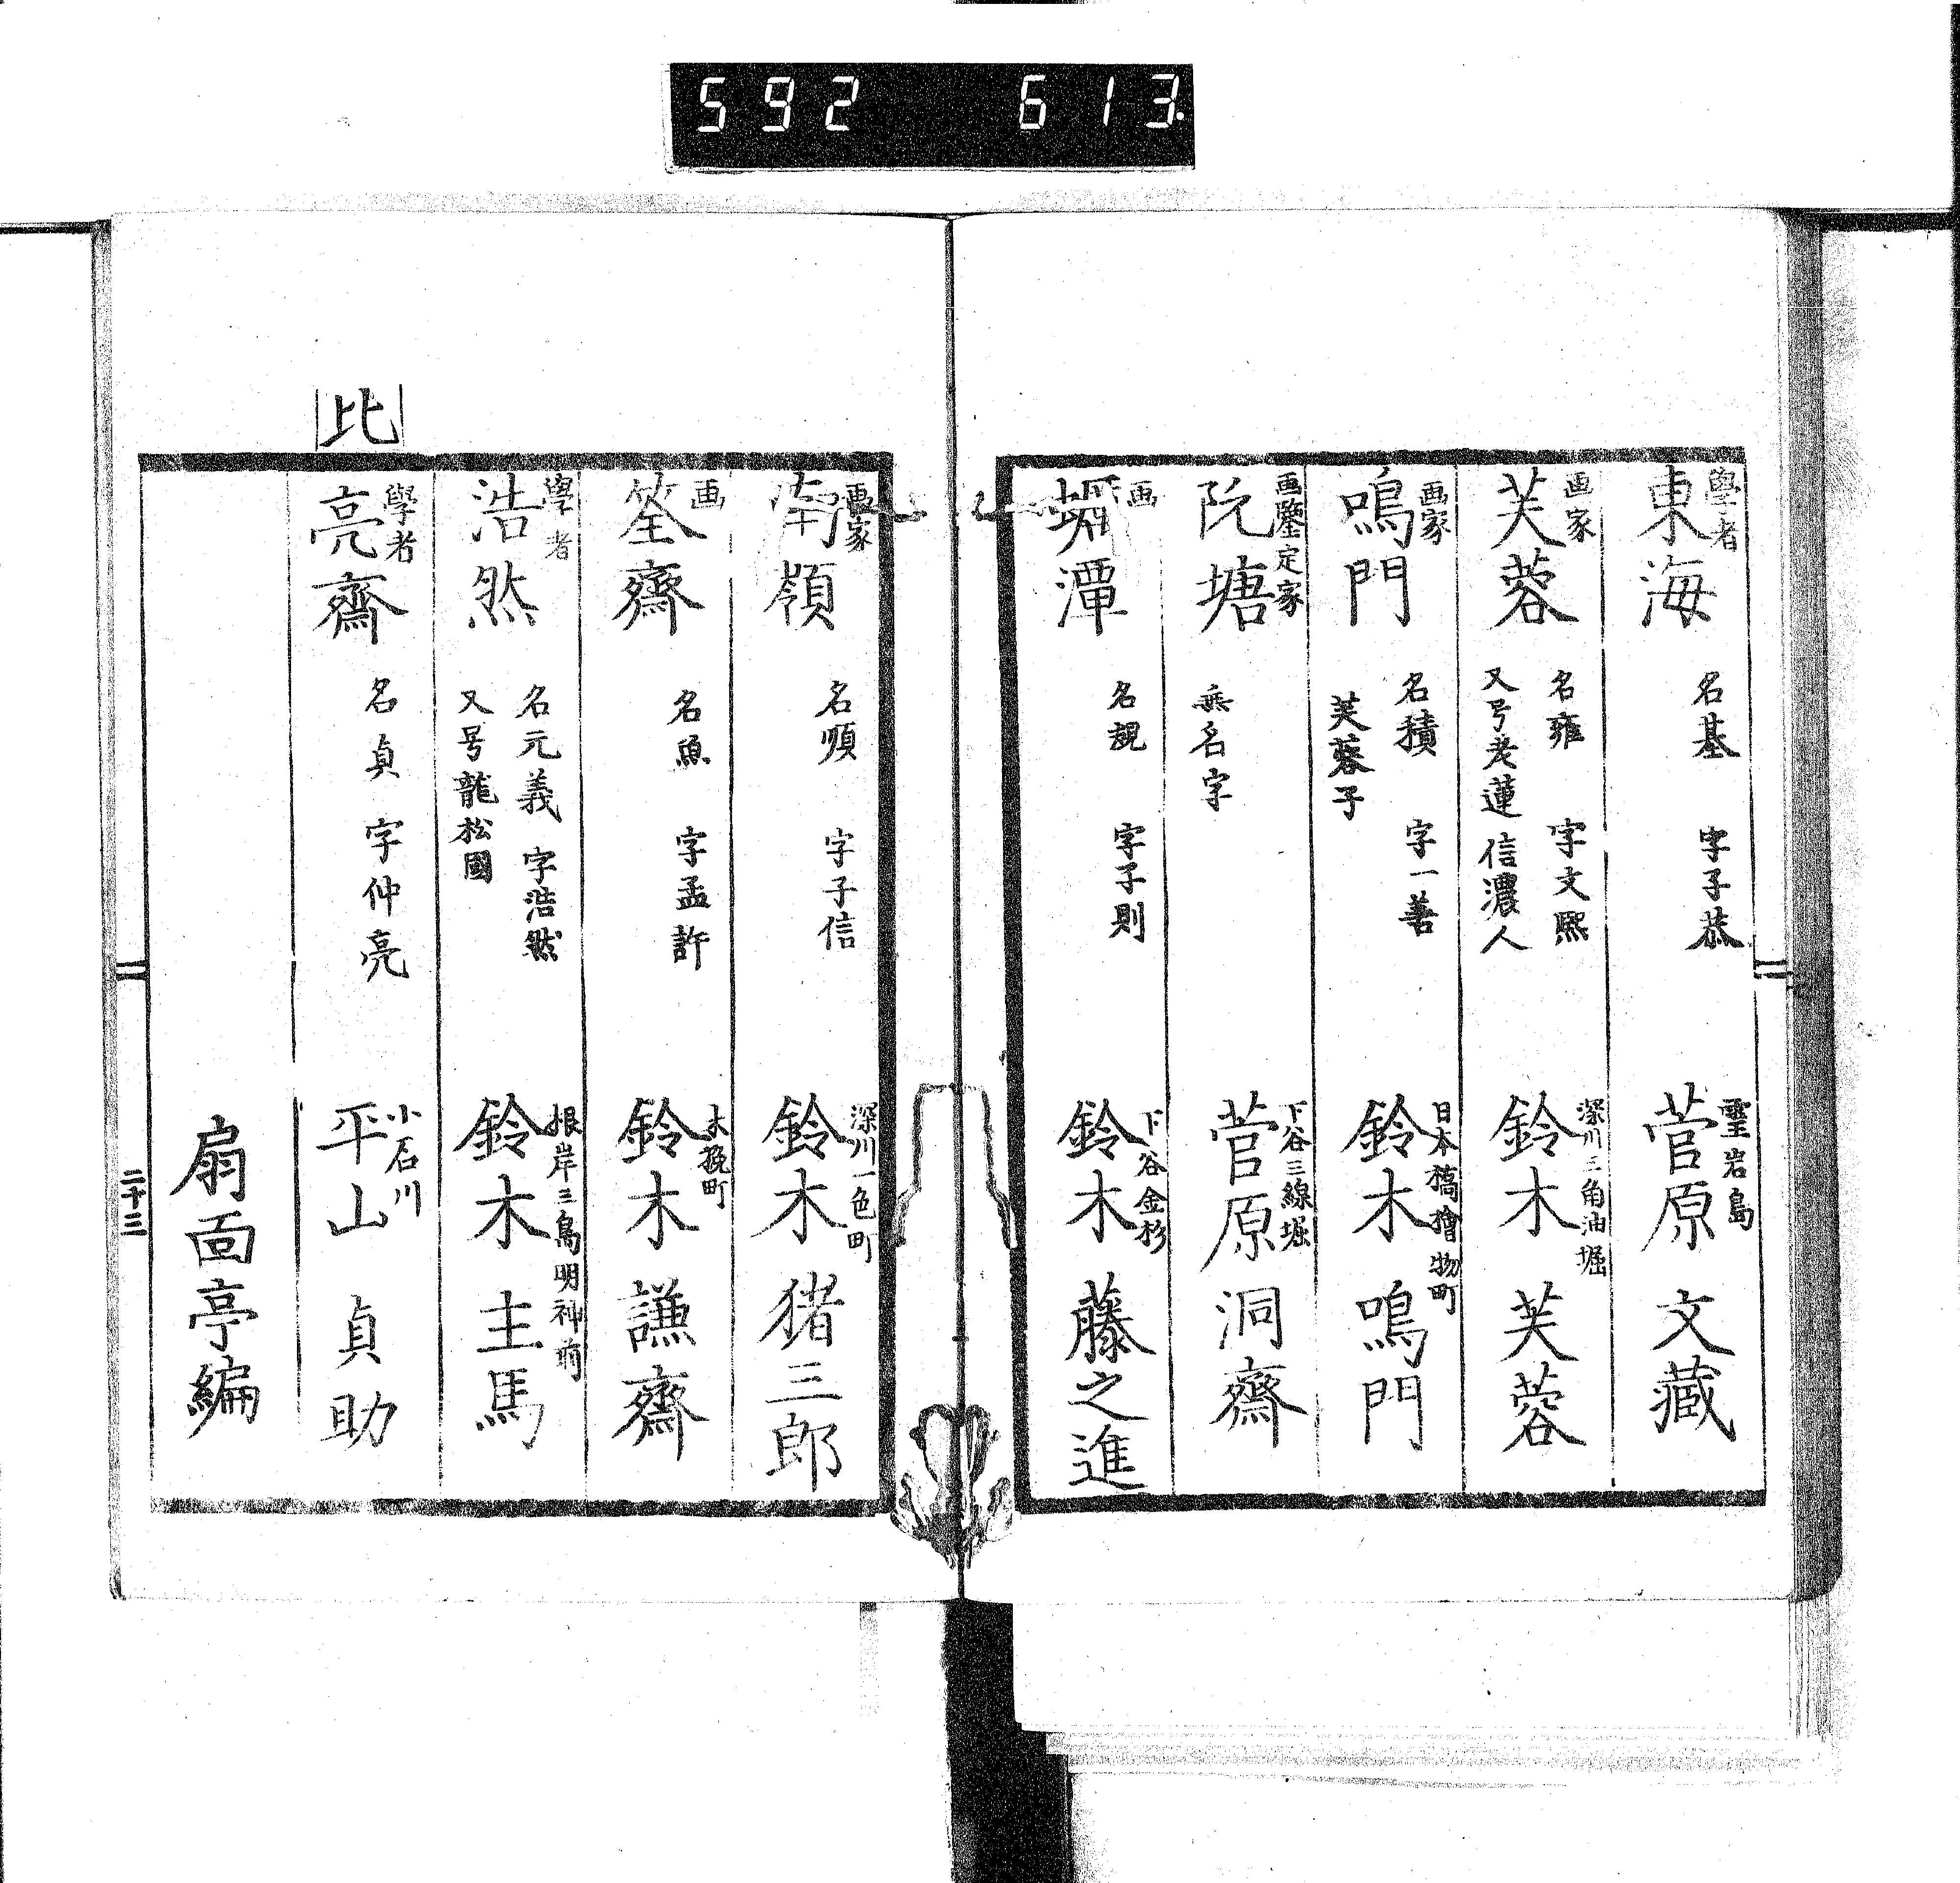 592 613
學者 東海 名基 字子恭 霊岩島 菅原文藏
画家 芙蓉 名雍 字文熙 又号老蓮 信濃人 深川三角油堀 鈴木芙蓉
画家 鳴門 名積 字一善 芙蓉子 日本橋檜物町 鈴木鳴門
画鑒定家 阮塘 無名字 下谷三線堀 菅原洞齋
画 潭 名 字子則 下谷金杉 鈴木藤之進
画家 南嶺 名順 字子信 深川一色町 鈴木猪三郎
画 筌齋 名魚 字孟許 木挽町 鈴木謙齋
學者 浩然 名元義 字浩然 又号龍松園 根岸三島明神前 鈴木主馬
比
學者 亮齋 名貞 字仲亮 小石川 平山貞助
扇面亭編
二十三